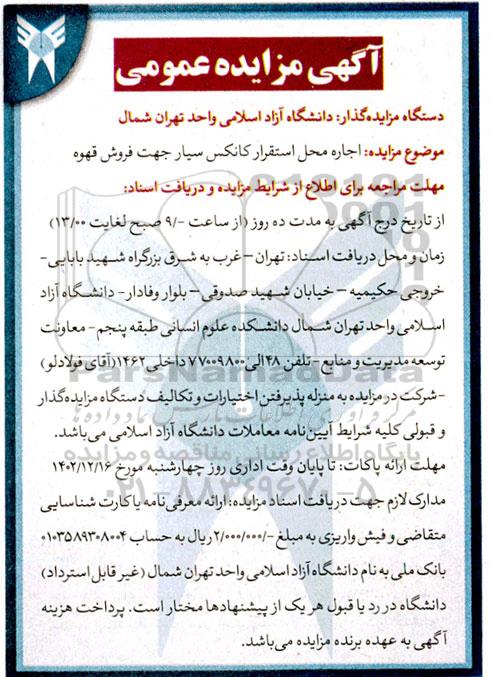 آگهی مزایده عمومی
دستگاه مزایده‌گذار: دانشگاه آزاد اسلامی واحد تهران شمال
موضوع مزایده: اجاره محل استقرار کانکس سیار جهت فروش قهوه
مهلت مراجعه برای اطلاع از شرایط مزایده و دریافت اسناد:
از تاریخ درج آگهی به مدت ده روز (از ساعت ۹/۰ صبح لغایت ۱۳/۰۰)
زمان و محل دریافت اسناد: تهران – غرب به شرق بزرگراه شهید بابایی-
خروجی حکیمیه – خیابان شهید صدوقی – بلوار وفادار - دانشگاه آزاد
اسلامی واحد تهران شمال دانشکده علوم انسانی طبقه پنجم - معاونت
توسعه مدیریت و منابع - تلفن ۴۸الی۷۷۰۰۹۸۰۰ داخلی۱۴۶۲(آقای فولادلو)
-شرکت در مزایده به منزله پذیرفتن اختیارات و تکالیف دستگاه مزایده‌گذار
و قبولی کلیه شرایط آیین‌نامه معاملات دانشگاه آزاد اسلامی می‌باشد.
مهلت ارائه پاکات: تا پایان وقت اداری روز چهارشنبه مورخ ۱۴۰۲/۱۲/۱۶
مدارک لازم جهت دریافت اسناد مزایده: ارائه معرفی نامه یا کارت شناسایی
متقاضی و فیش واریزی به مبلغ -/۲/۰۰۰/۰۰۰ ریال به حساب ۰۱۰۳۵۸۹۳۰۸۰۰۴
بانک ملی به نام دانشگاه آزاد اسلامی واحد تهران شمال (غیر قابل استرداد)
دانشگاه در رد یا قبول هر یک از پیشنهادها مختار است. پرداخت هزینه
آگهی به عهده برنده مزایده می‌باشد.
ParsNamadData
پایگاه اطلاع رسانی مناقصه و مزایده
۰۲۱-۸۸۳۴۹۶۷۰-۵